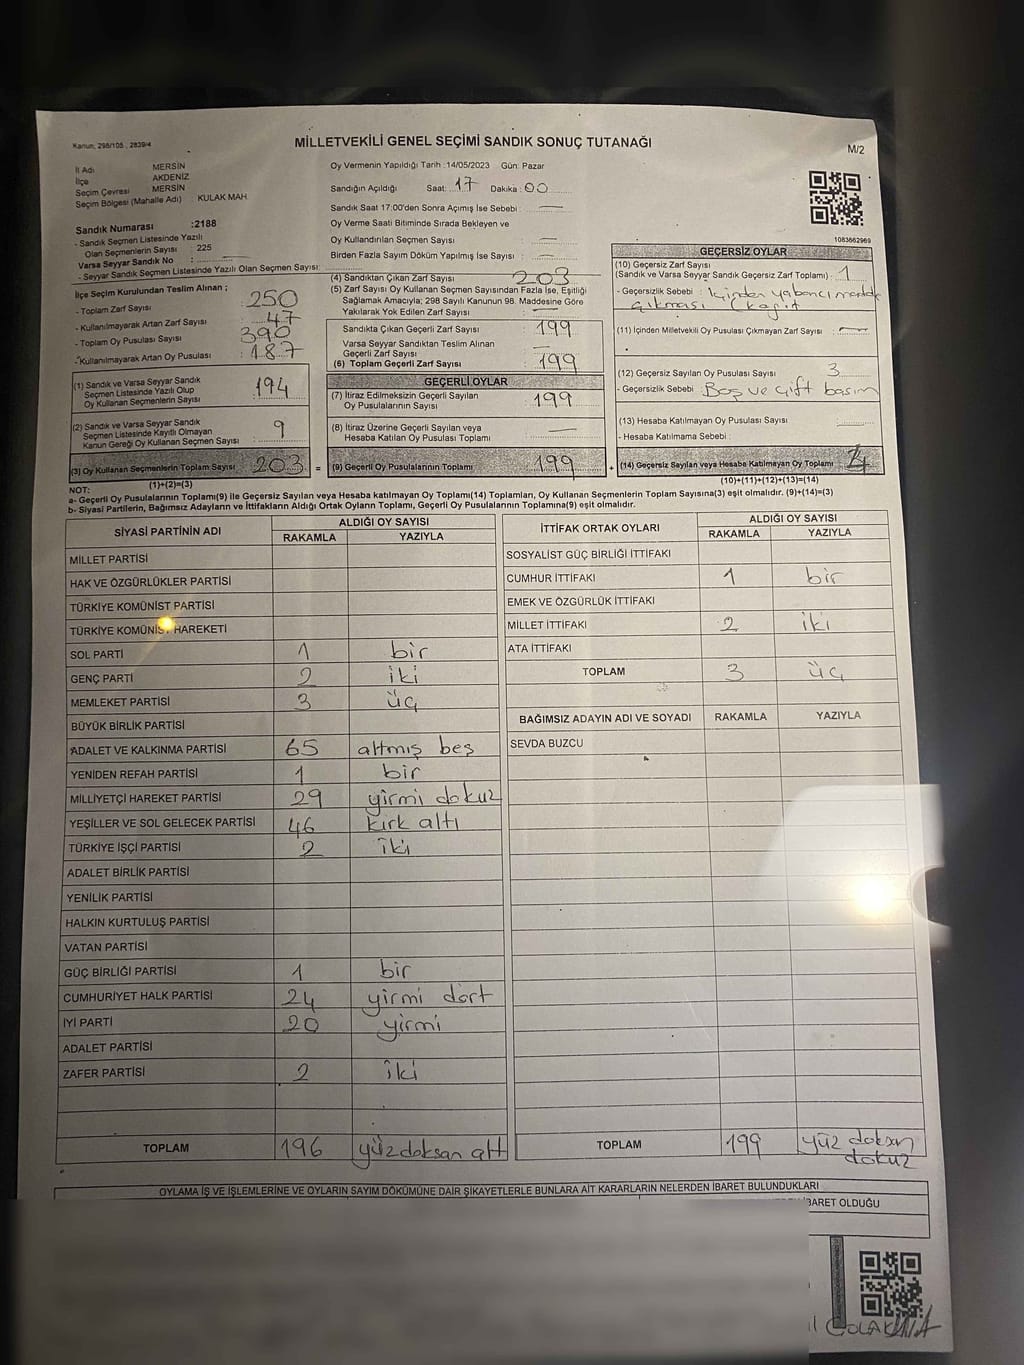 Kanun, 298/105 , 2839/4
MİLLETVEKİLİ GENEL SEÇİMİ SANDIK SONUÇ TUTANAĞI
M/2
İl Adı MERSİN
İlçe AKDENİZ
Seçim Çevresi MERSİN
Seçim Bölgesi (Mahalle Adı) : KULAK MAH
Sandık Numarası :2188
- Sandık Seçmen Listesinde Yazılı
Olan Seçmenlerin Sayısı : 225
Varsa Seyyar Sandık No :
- Seyyar Sandık Seçmen Listesinde Yazılı Olan Seçmen Sayısı:
İlçe Seçim Kurulundan Teslim Alınan ;
- Toplam Zarf Sayısı : 250
- Kullanılmayarak Artan Zarf Sayısı : 47
- Toplam Oy Pusulası Sayısı : 390
- Kullanılmayarak Artan Oy Pusulası : 187
(1) Sandık ve Varsa Seyyar Sandık
Seçmen Listesinde Yazılı Olup
Oy Kullanan Seçmenlerin Sayısı : 194
(2) Sandık ve Varsa Seyyar Sandık
Seçmen Listesinde Kayıtlı Olmayan
Kanun Gereği Oy Kullanan Seçmen Sayısı : 9
(3) Oy Kullanan Seçmenlerin Toplam Sayısı : 203
(1)+(2)=(3)
Oy Vermenin Yapıldığı Tarih :14/05/2023 Gün: Pazar
Sandığın Açıldığı Saat: 17 Dakika : 00
Sandık Saat 17:00'den Sonra Açılmış İse Sebebi : —
Oy Verme Saati Bitiminde Sırada Bekleyen ve
Oy Kullandırılan Seçmen Sayısı : —
Birden Fazla Sayım Döküm Yapılmış İse Sayısı : —
(4) Sandıktan Çıkan Zarf Sayısı : 203
(5) Zarf Sayısı Oy Kullanan Seçmen Sayısından Fazla İse, Eşitliği
Sağlamak Amacıyla; 298 Sayılı Kanunun 98. Maddesine Göre
Yakılarak Yok Edilen Zarf Sayısı : —
Sandıkta Çıkan Geçerli Zarf Sayısı : 199
Varsa Seyyar Sandıktan Teslim Alınan
Geçerli Zarf Sayısı : —
(6) Toplam Geçerli Zarf Sayısı : 199
GEÇERLİ OYLAR
(7) İtiraz Edilmeksizin Geçerli Sayılan
Oy Pusulalarının Sayısı : 199
(8) İtiraz Üzerine Geçerli Sayılan veya
Hesaba Katılan Oy Pusulası Toplamı : —
= (9) Geçerli Oy Pusulalarının Toplamı : 199 +
1083662969
GEÇERSİZ OYLAR
(10) Geçersiz Zarf Sayısı
(Sandık ve Varsa Seyyar Sandık Geçersiz Zarf Toplamı) : 1
- Geçersizlik Sebebi : İçinden yabancı madde
çıkması (kağıt
(11) İçinden Milletvekili Oy Pusulası Çıkmayan Zarf Sayısı : —
(12) Geçersiz Sayılan Oy Pusulası Sayısı : 3
- Geçersizlik Sebebi : Boş ve çift basım
(13) Hesaba Katılmayan Oy Pusulası Sayısı : —
- Hesaba Katılmama Sebebi :
(14) Geçersiz Sayılan veya Hesaba Katılmayan Oy Toplamı : 4
(10)+(11)+(12)+(13)=(14)
NOT:
a- Geçerli Oy Pusulalarının Toplamı(9) ile Geçersiz Sayılan veya Hesaba katılmayan Oy Toplamı(14) Toplamları, Oy Kullanan Seçmenlerin Toplam Sayısına(3) eşit olmalıdır. (9)+(14)=(3)
b- Siyasi Partilerin, Bağımsız Adayların ve İttifakların Aldığı Ortak Oyların Toplamı, Geçerli Oy Pusulalarının Toplamına(9) eşit olmalıdır.
SİYASİ PARTİNİN ADI ALDIĞI OY SAYISI
RAKAMLA YAZIYLA
MİLLET PARTİSİ
HAK VE ÖZGÜRLÜKLER PARTİSİ
TÜRKİYE KOMÜNİST PARTİSİ
TÜRKİYE HAREKETİ
SOL PARTİ 1 bir
GENÇ PARTİ 2 iki
MEMLEKET PARTİSİ 3 üç
BÜYÜK BİRLİK PARTİSİ
ADALET VE KALKINMA PARTİSİ 65 altmış beş
YENİDEN REFAH PARTİSİ 1 bir
MİLLİYETÇİ HAREKET PARTİSİ 29 yirmi dokuz
YEŞİLLER VE SOL GELECEK PARTİSİ 46 kırk altı
TÜRKİYE İŞÇİ PARTİSİ 2 iki
ADALET BİRLİK PARTİSİ
YENİLİK PARTİSİ
HALKIN KURTULUŞ PARTİSİ
VATAN PARTİSİ
GÜÇ BİRLİĞİ PARTİSİ 1 bir
CUMHURİYET HALK PARTİSİ 24 yirmi dört
İYİ PARTİ 20 yirmi
ADALET PARTİSİ
ZAFER PARTİSİ 2 iki
TOPLAM 196 yüz doksan altı
İTTİFAK ORTAK OYLARI ALDIĞI OY SAYISI
RAKAMLA YAZIYLA
SOSYALİST GÜÇ BİRLİĞİ İTTİFAKI
CUMHUR İTTİFAKI 1 bir
EMEK VE ÖZGÜRLÜK İTTİFAKI
MİLLET İTTİFAKI 2 iki
ATA İTTİFAKI
TOPLAM 3 üç
BAĞIMSIZ ADAYIN ADI VE SOYADI RAKAMLA YAZIYLA
SEVDA BUZCU
TOPLAM 199 yüz doksan
dokuz
OYLAMA İŞ VE İŞLEMLERİNE VE OYLARIN SAYIM DÖKÜMÜNE DAİR ŞİKAYETLERLE BUNLARA AİT KARARLARIN NELERDEN İBARET BULUNDUKLARI
İBARET OLDUĞU